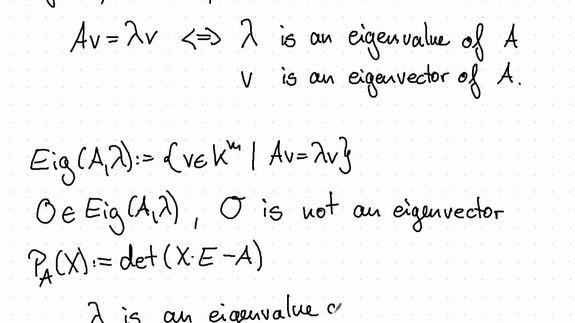 Av = λv ⇔ λ is an eigenvalue of A
v is an eigenvector of A.
Eig(A,λ) := {v∈K^n | Av = λv}
0 ∈ Eig(A,λ), 0 is not an eigenvector
P_A(X) := det(X·E - A)
λ is an eigenvalue